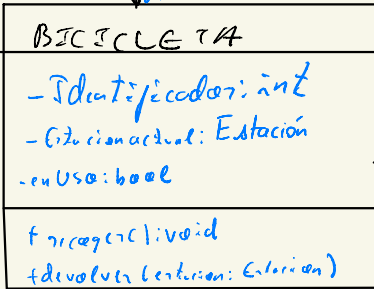 BICICLETA
- Identificador: int
- Estacionactual: Estación
- enUso: bool
+ recoger(): void
+ devolver (estacion: Estacion)